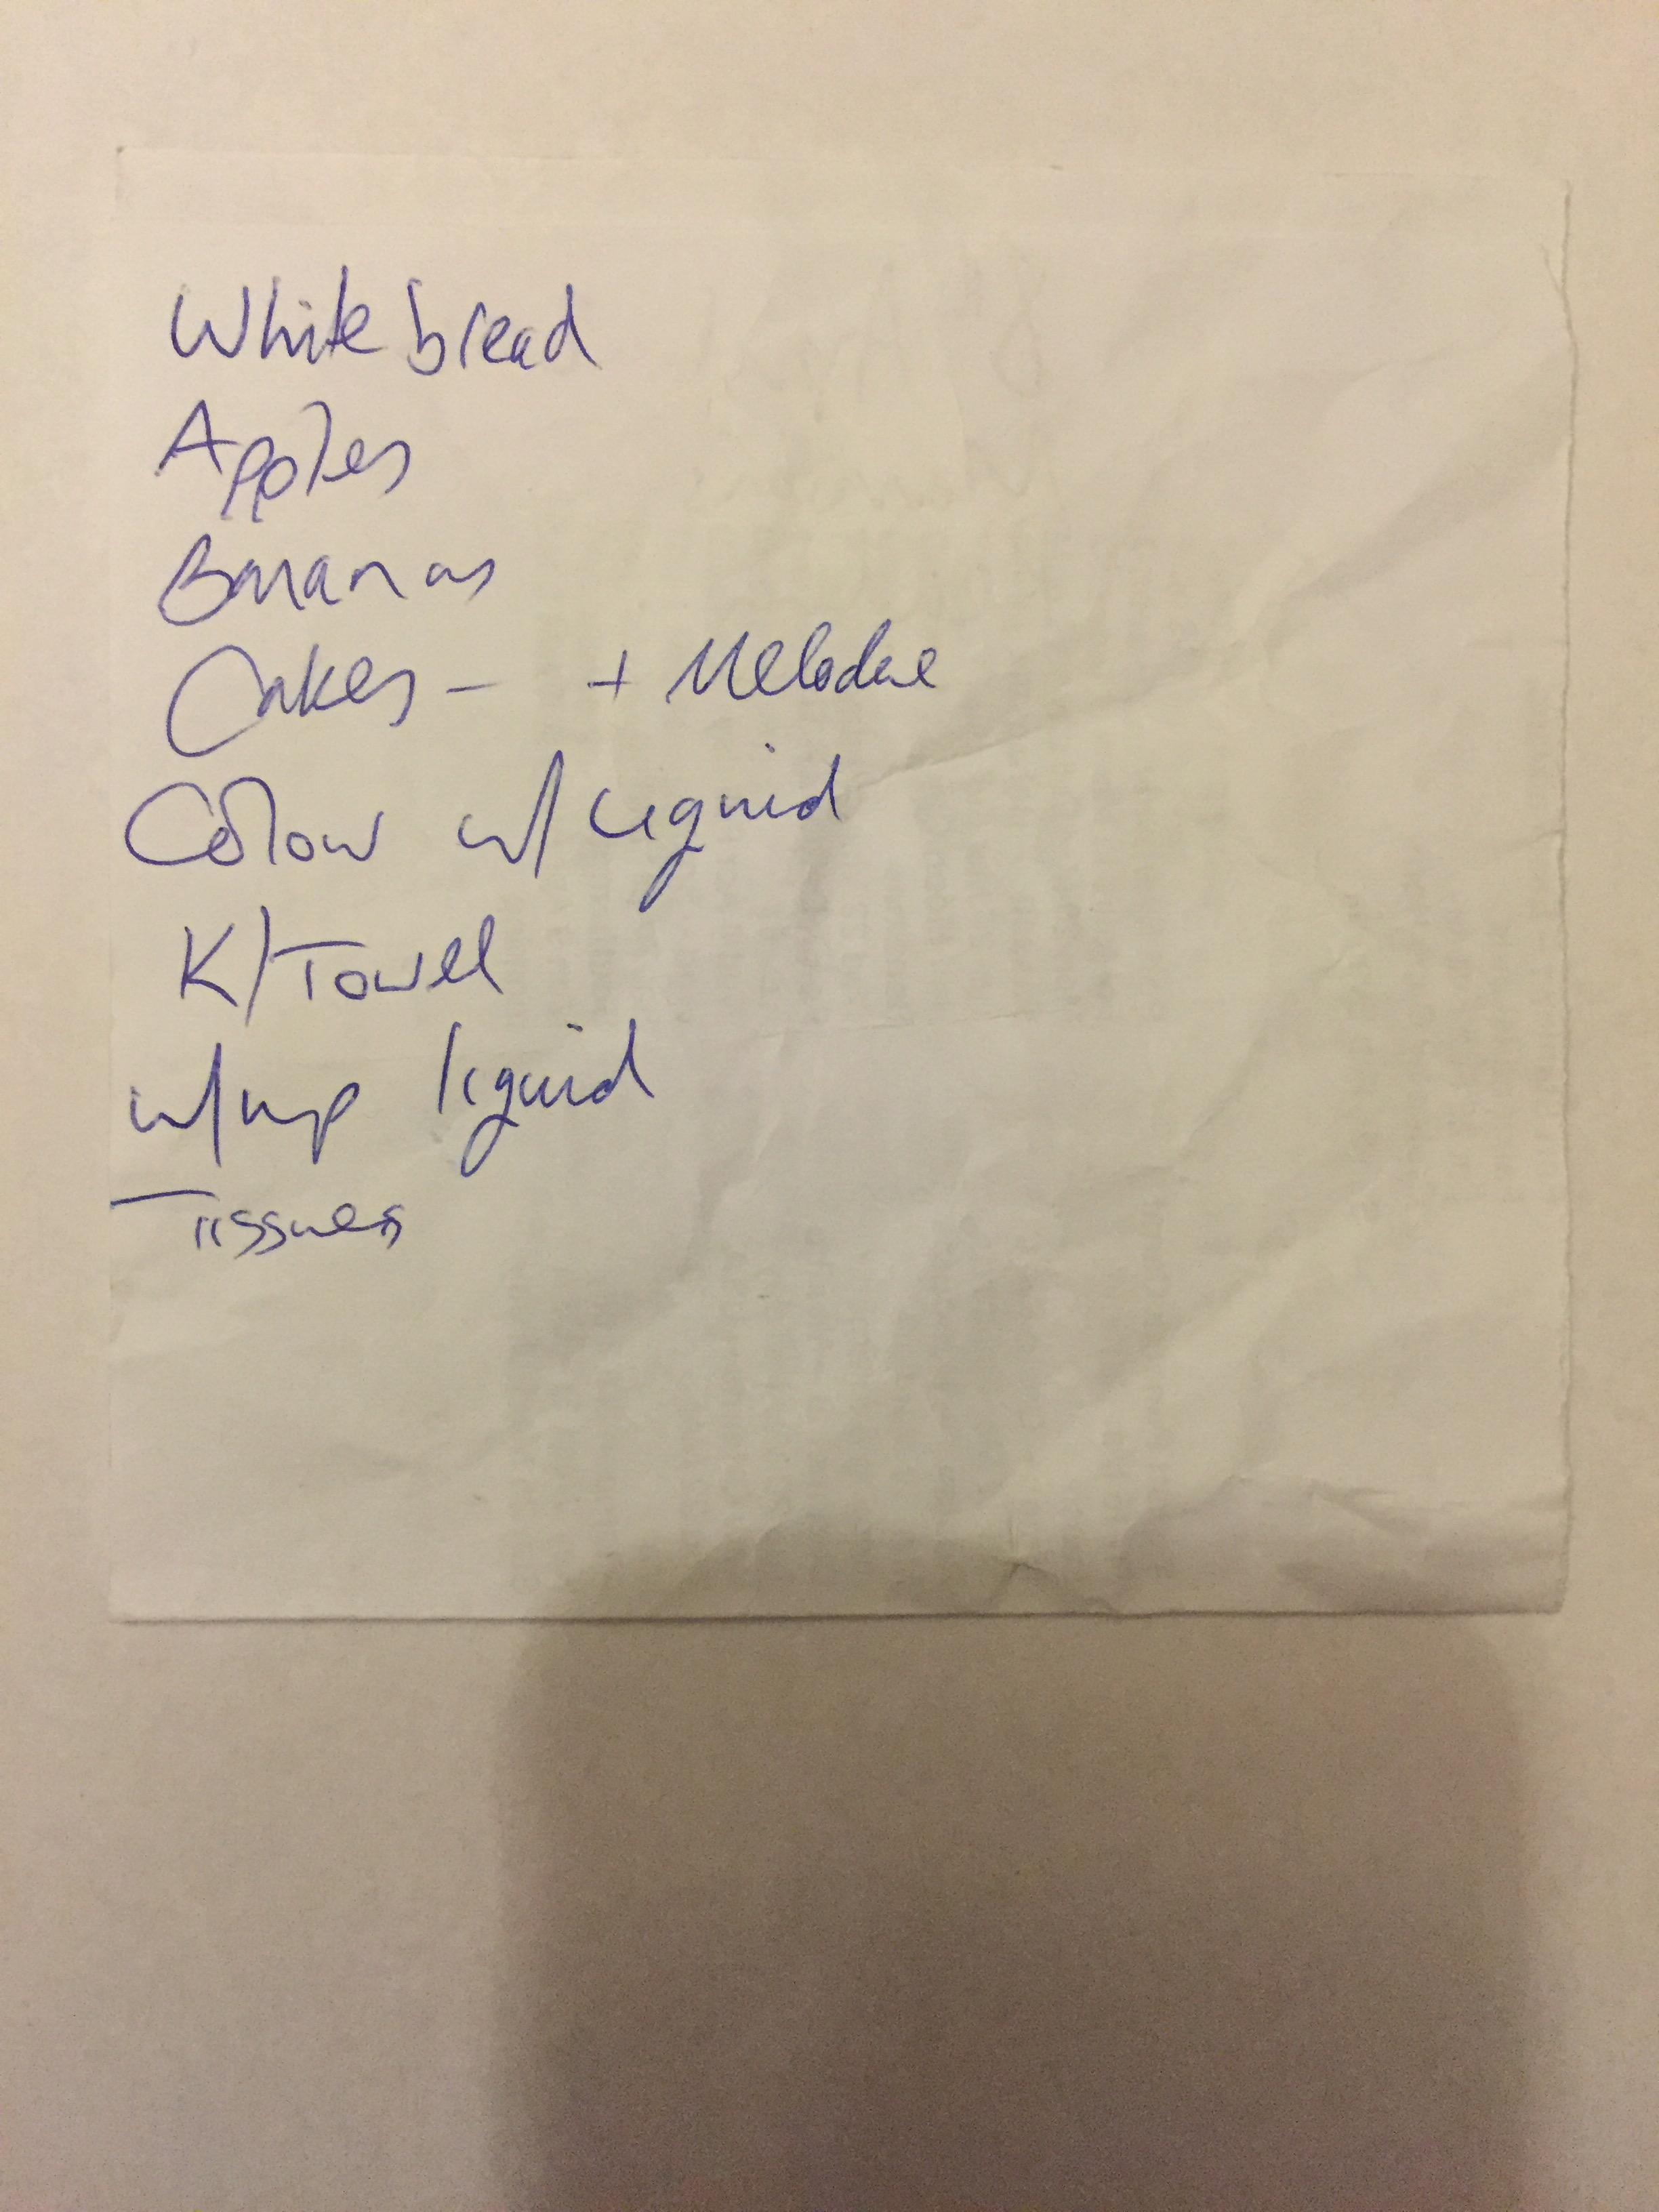 White bread
Apples
Bananas
Cakes - + Melodie
Colour w/ liquid
K/Towel
w/up liquid
Tissues